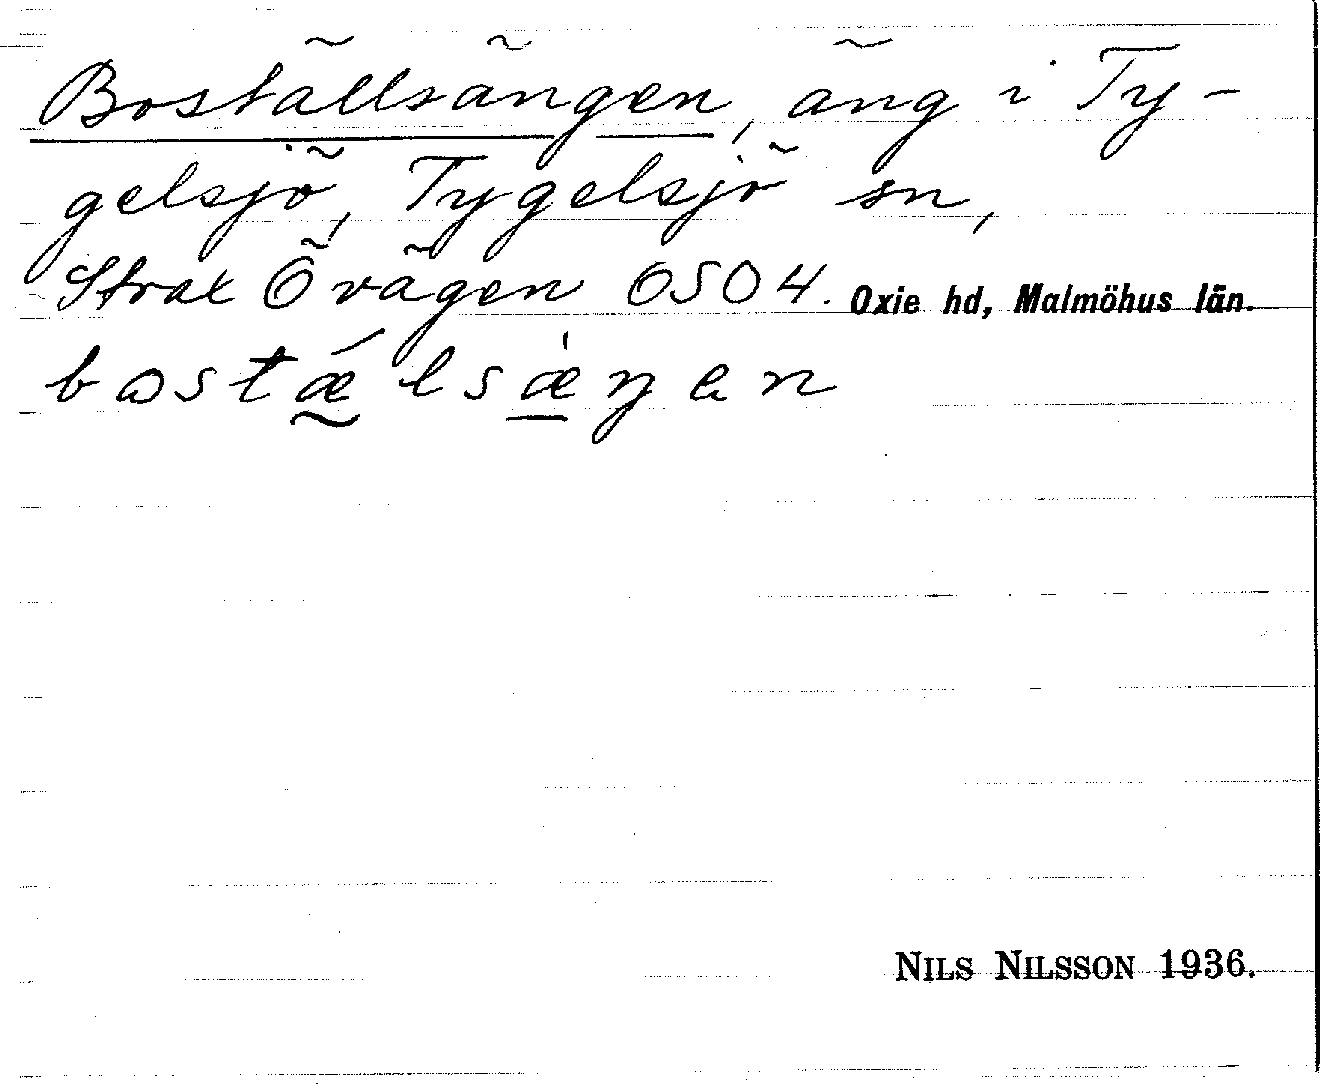 Boställsängen, äng i Ty-
gelsjö, Tygelsjö sn,
Strax Ö vägen 0504. Oxie hd, Malmöhus län.
NILS NILSSON 1936.